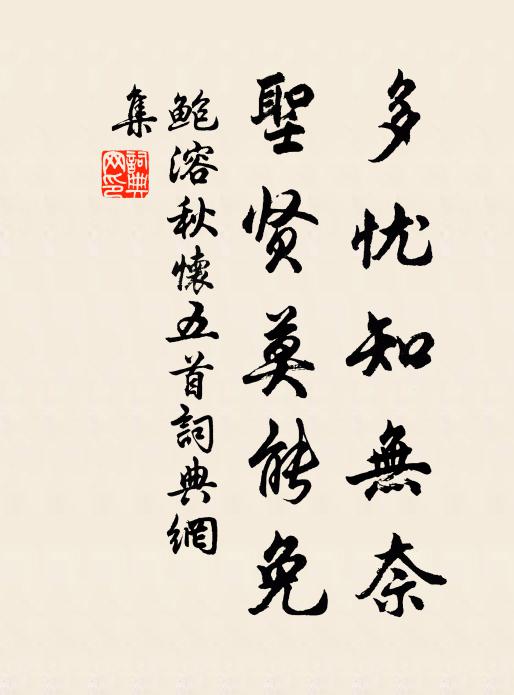 多忧知無奈
聖贤莫能免
鲍溶秋懷五首詞典網
集
詞典
网印